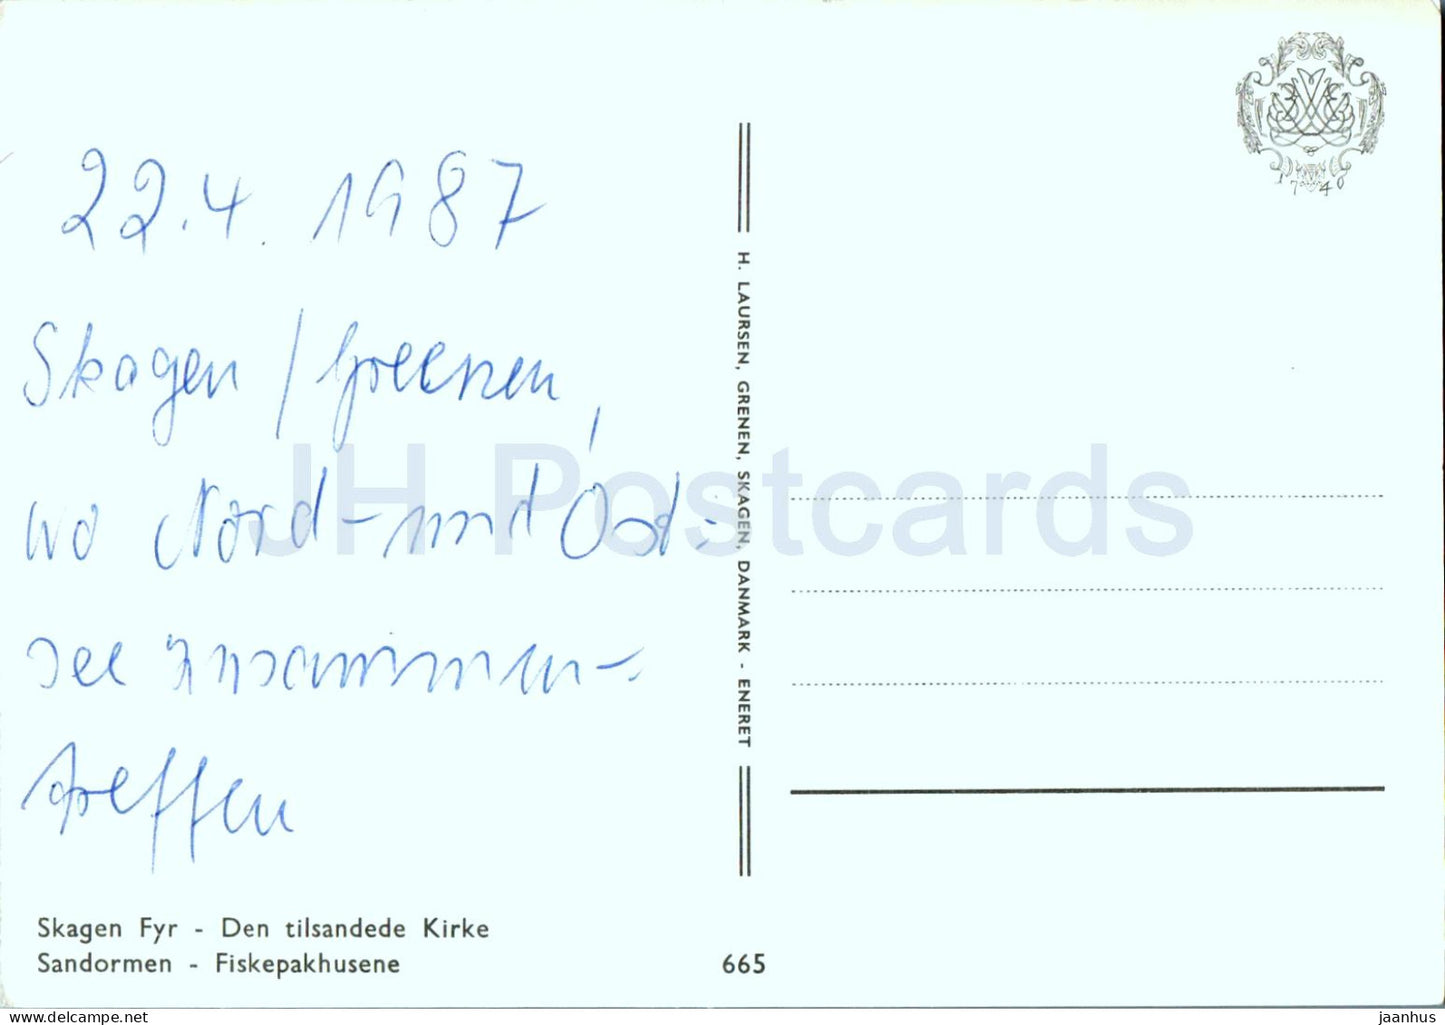 22.4. 1987
Skagen / Greenen,
wo Nord- und Ost-
see zusammen-
treffen
Skagen Fyr - Den tilsandede Kirke
Sandormen - Fiskepakhusene
665
H. LAURSEN, GRENEN, SKAGEN, DANMARK - ENERET
1740
JH Postcards
jaanhus